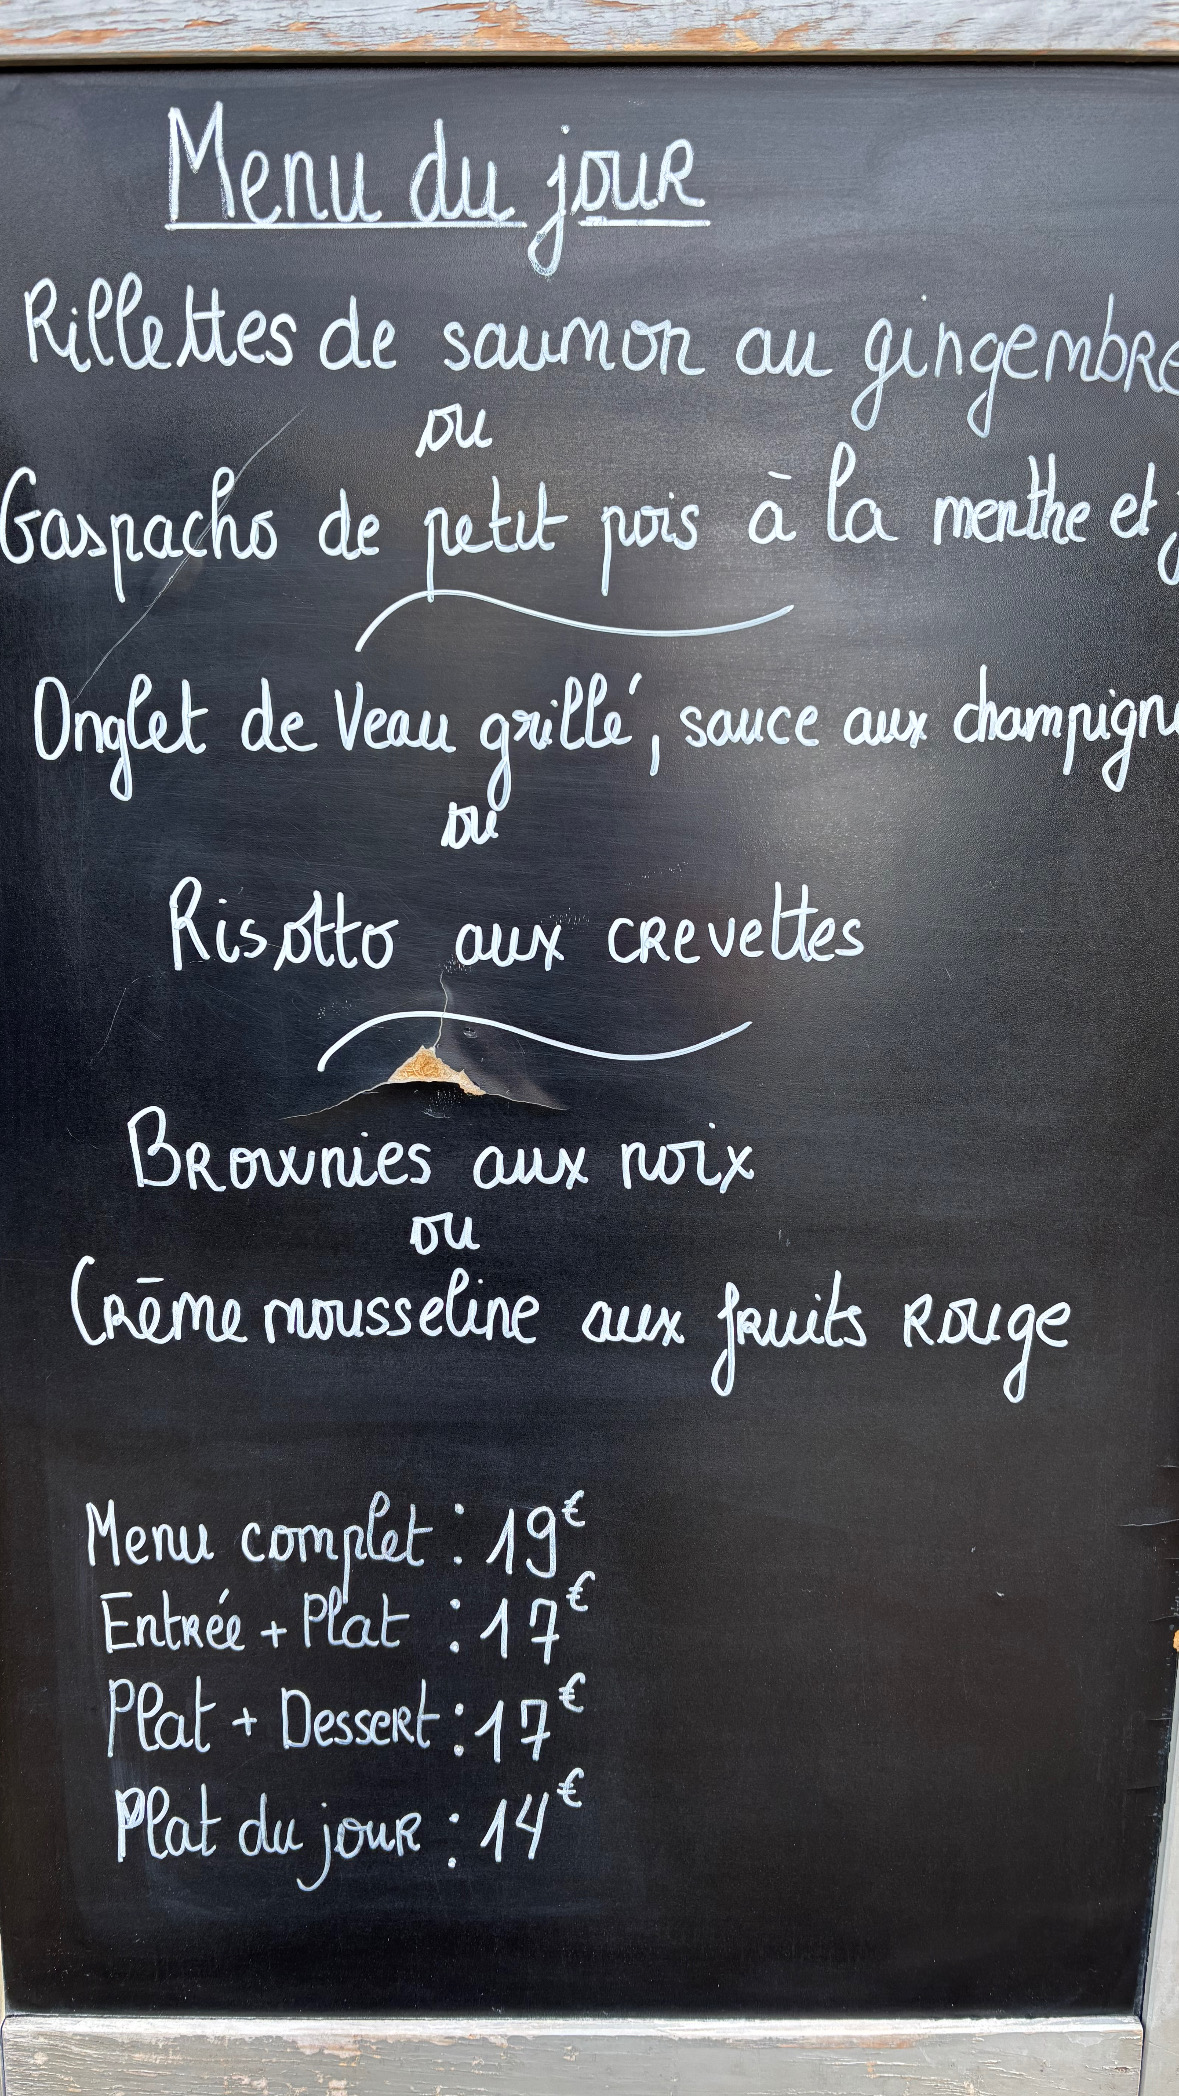 Menu du jour
Rillettes de saumon au gingembre
ou
Gaspacho de petit pois à la menthe et
Onglet de Veau grillé, sauce aux champign
ou
Risotto aux crevettes
Brownies aux noix
ou
Crème mousseline aux fruits rouge
Menu complet : 19€
Entrée + Plat : 17€
Plat + Dessert : 17€
Plat du jour : 14€